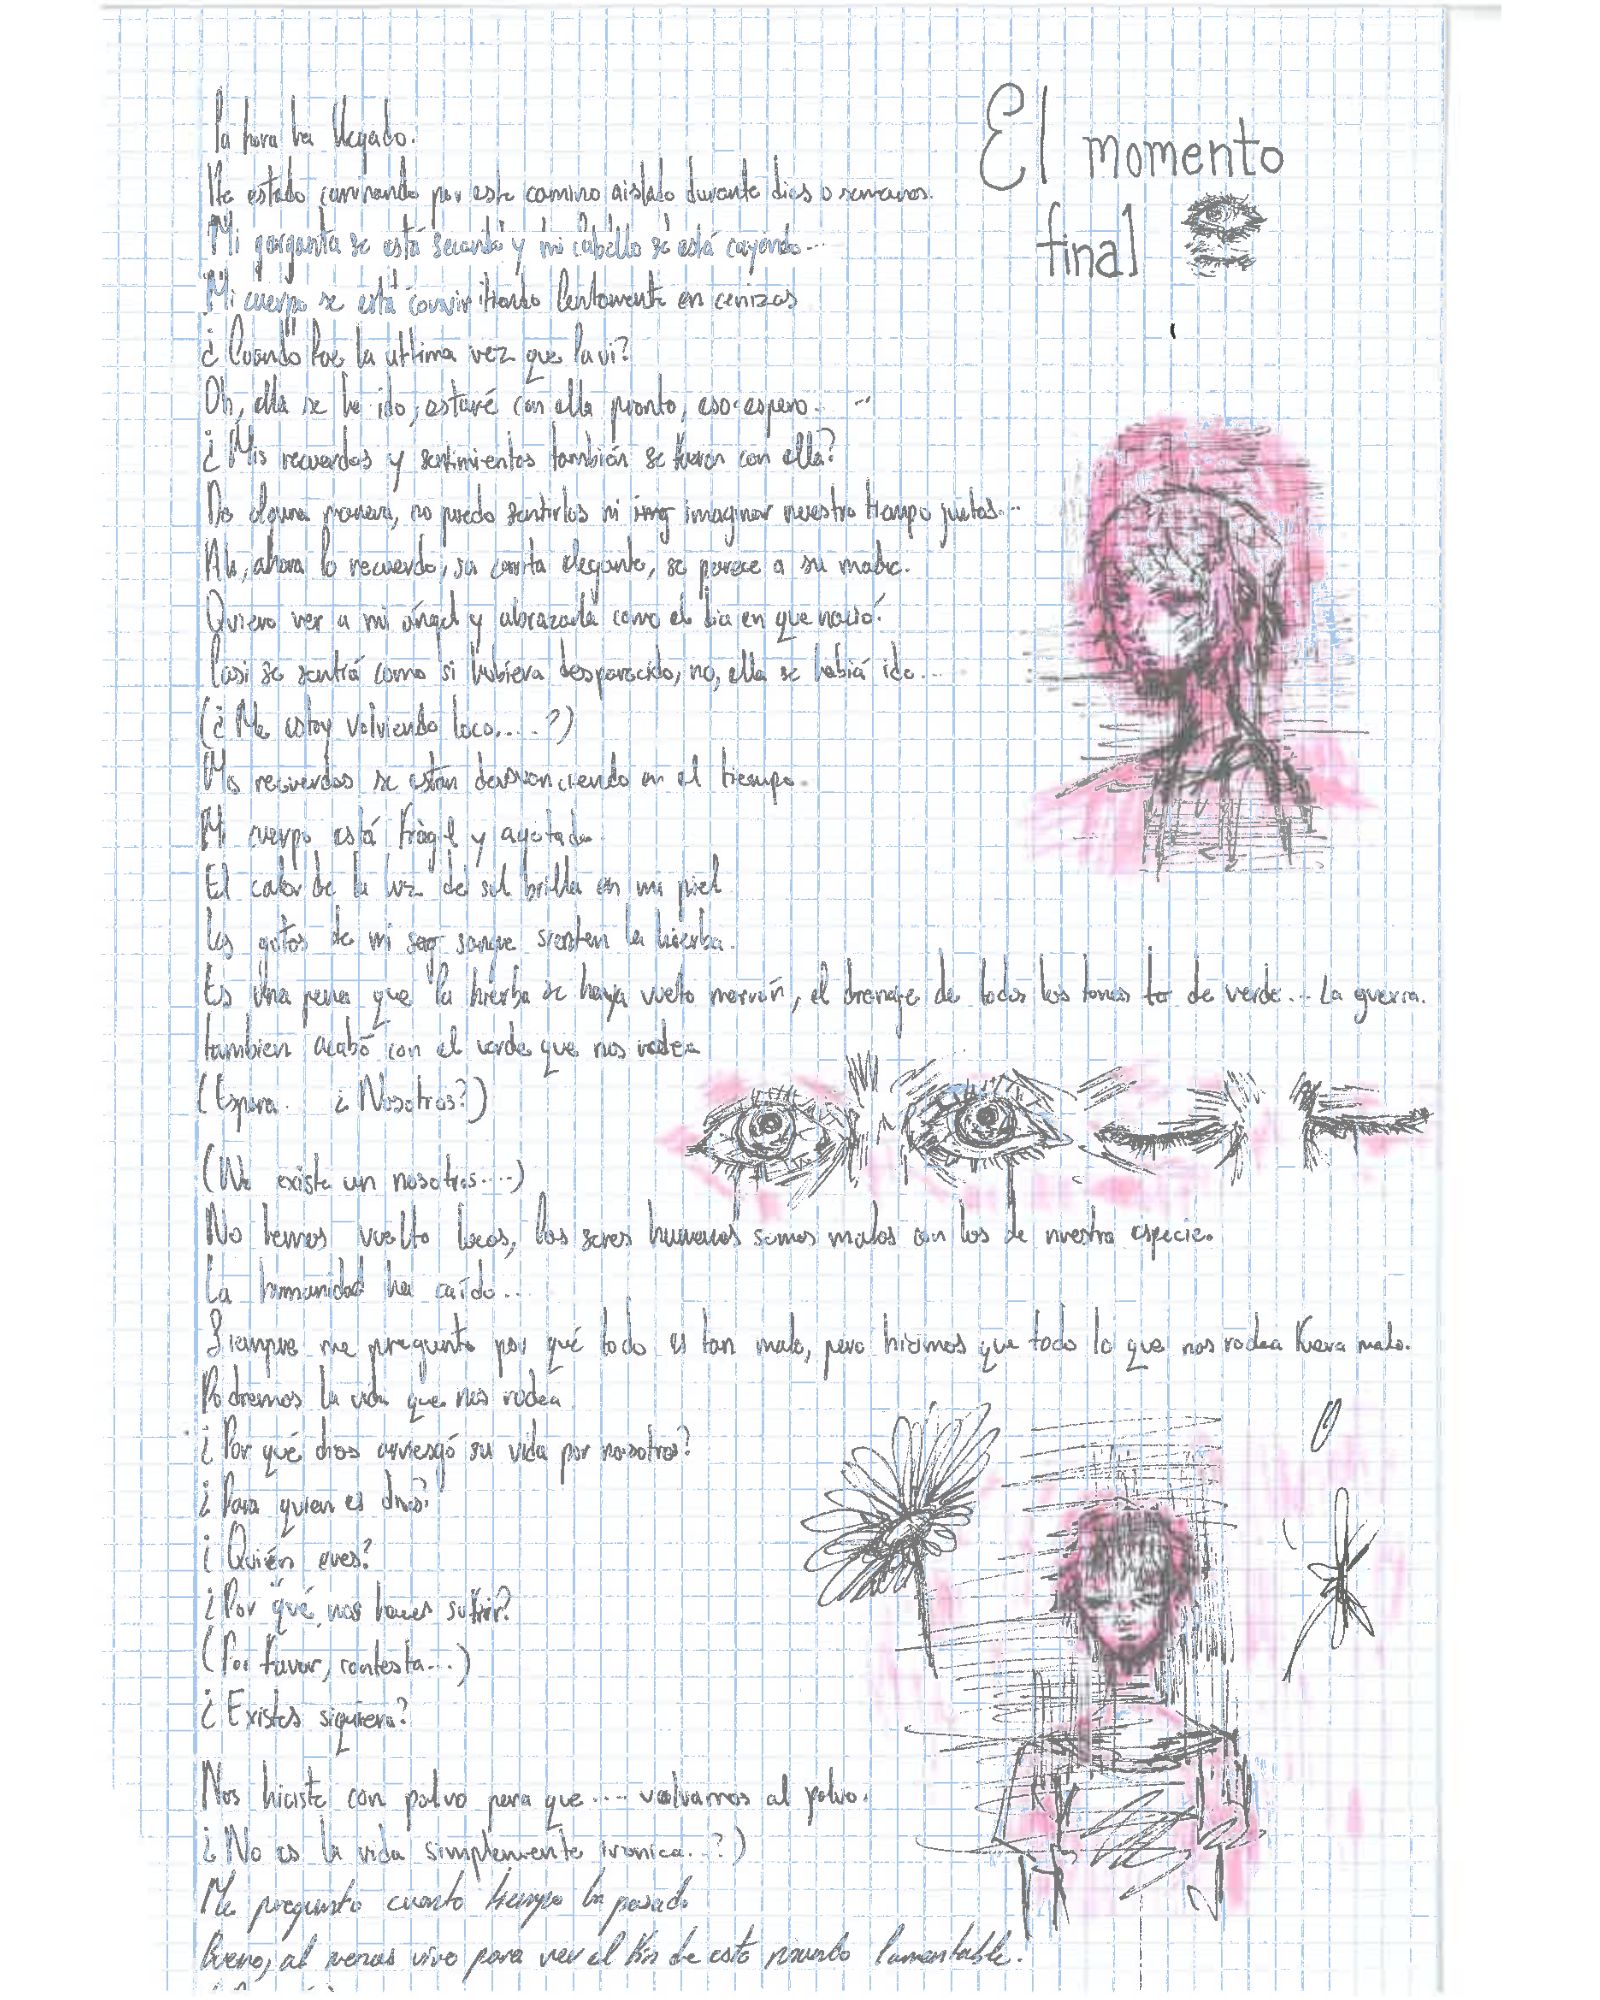 El momento
final
La hora ha llegado.
He estado caminando por este camino aislado durante dias o semanas.
Mi garganta se está secando y mi cabello se está cayendo...
Mi cuerpo se está convirtiendo lentamente en cenizas
¿Cuándo fue la ultima vez que la vi?
Oh, ella se ha ido, estaré con ella pronto, eso espero. ..
¿Mis recuerdos y sentimientos también se fueron con ella?
De alguna manera, no puedo sentirlos ni img imaginar nuestro tiempo juntos...
Ah, ahora lo recuerdo, su carita elegante, se parece a su madre.
Quiero ver a mi ángel y abrazarla como el dia en que nació.
Casi se sentiá como si hubiera desparecido, no, ella se habiá ido...
(¿Me estoy volviendo loco....?)
Mis recuerdos se están desvaneciendo en el tiempo.
Mi cuerpo está frágil y agotado.
El calor de la luz del sol brilla en mi piel
Las gotas de mi sag sangre sienten la hierba.
Es una pena que la hierba se haya vuelto marrón, el drenaje de todos los tonos to de verde... La guerra.
tambien acabó con el verde que nos rodea
(Espera. ¿Nosotros?)
(No existe un nosotros....)
Nos hemos vuelto locos, los seres humanos somos malos con los de nuestra especie.
La humanidad ha caído...
Siempre me pregunto por qué todo es tan malo, pero hicimos que todo lo que nos rodea fuera malo.
Podremos la vida que nos rodea
¿Por qué dios arriesgó su vida por nosotros?
¿Para quien es dios?
¿Quién eres?
¿Por qué nos haces sufrir?
(Por favor, contesta...)
¿Existes siquiera?
Nos hiciste con polvo para que .... volvamos al polvo.
¿No es la vida simplemente ironica..?)
Me pregunto cuanto tiempo ha pasado.
Bueno, al menos vivo para ver el fin de este mundo lamentable.